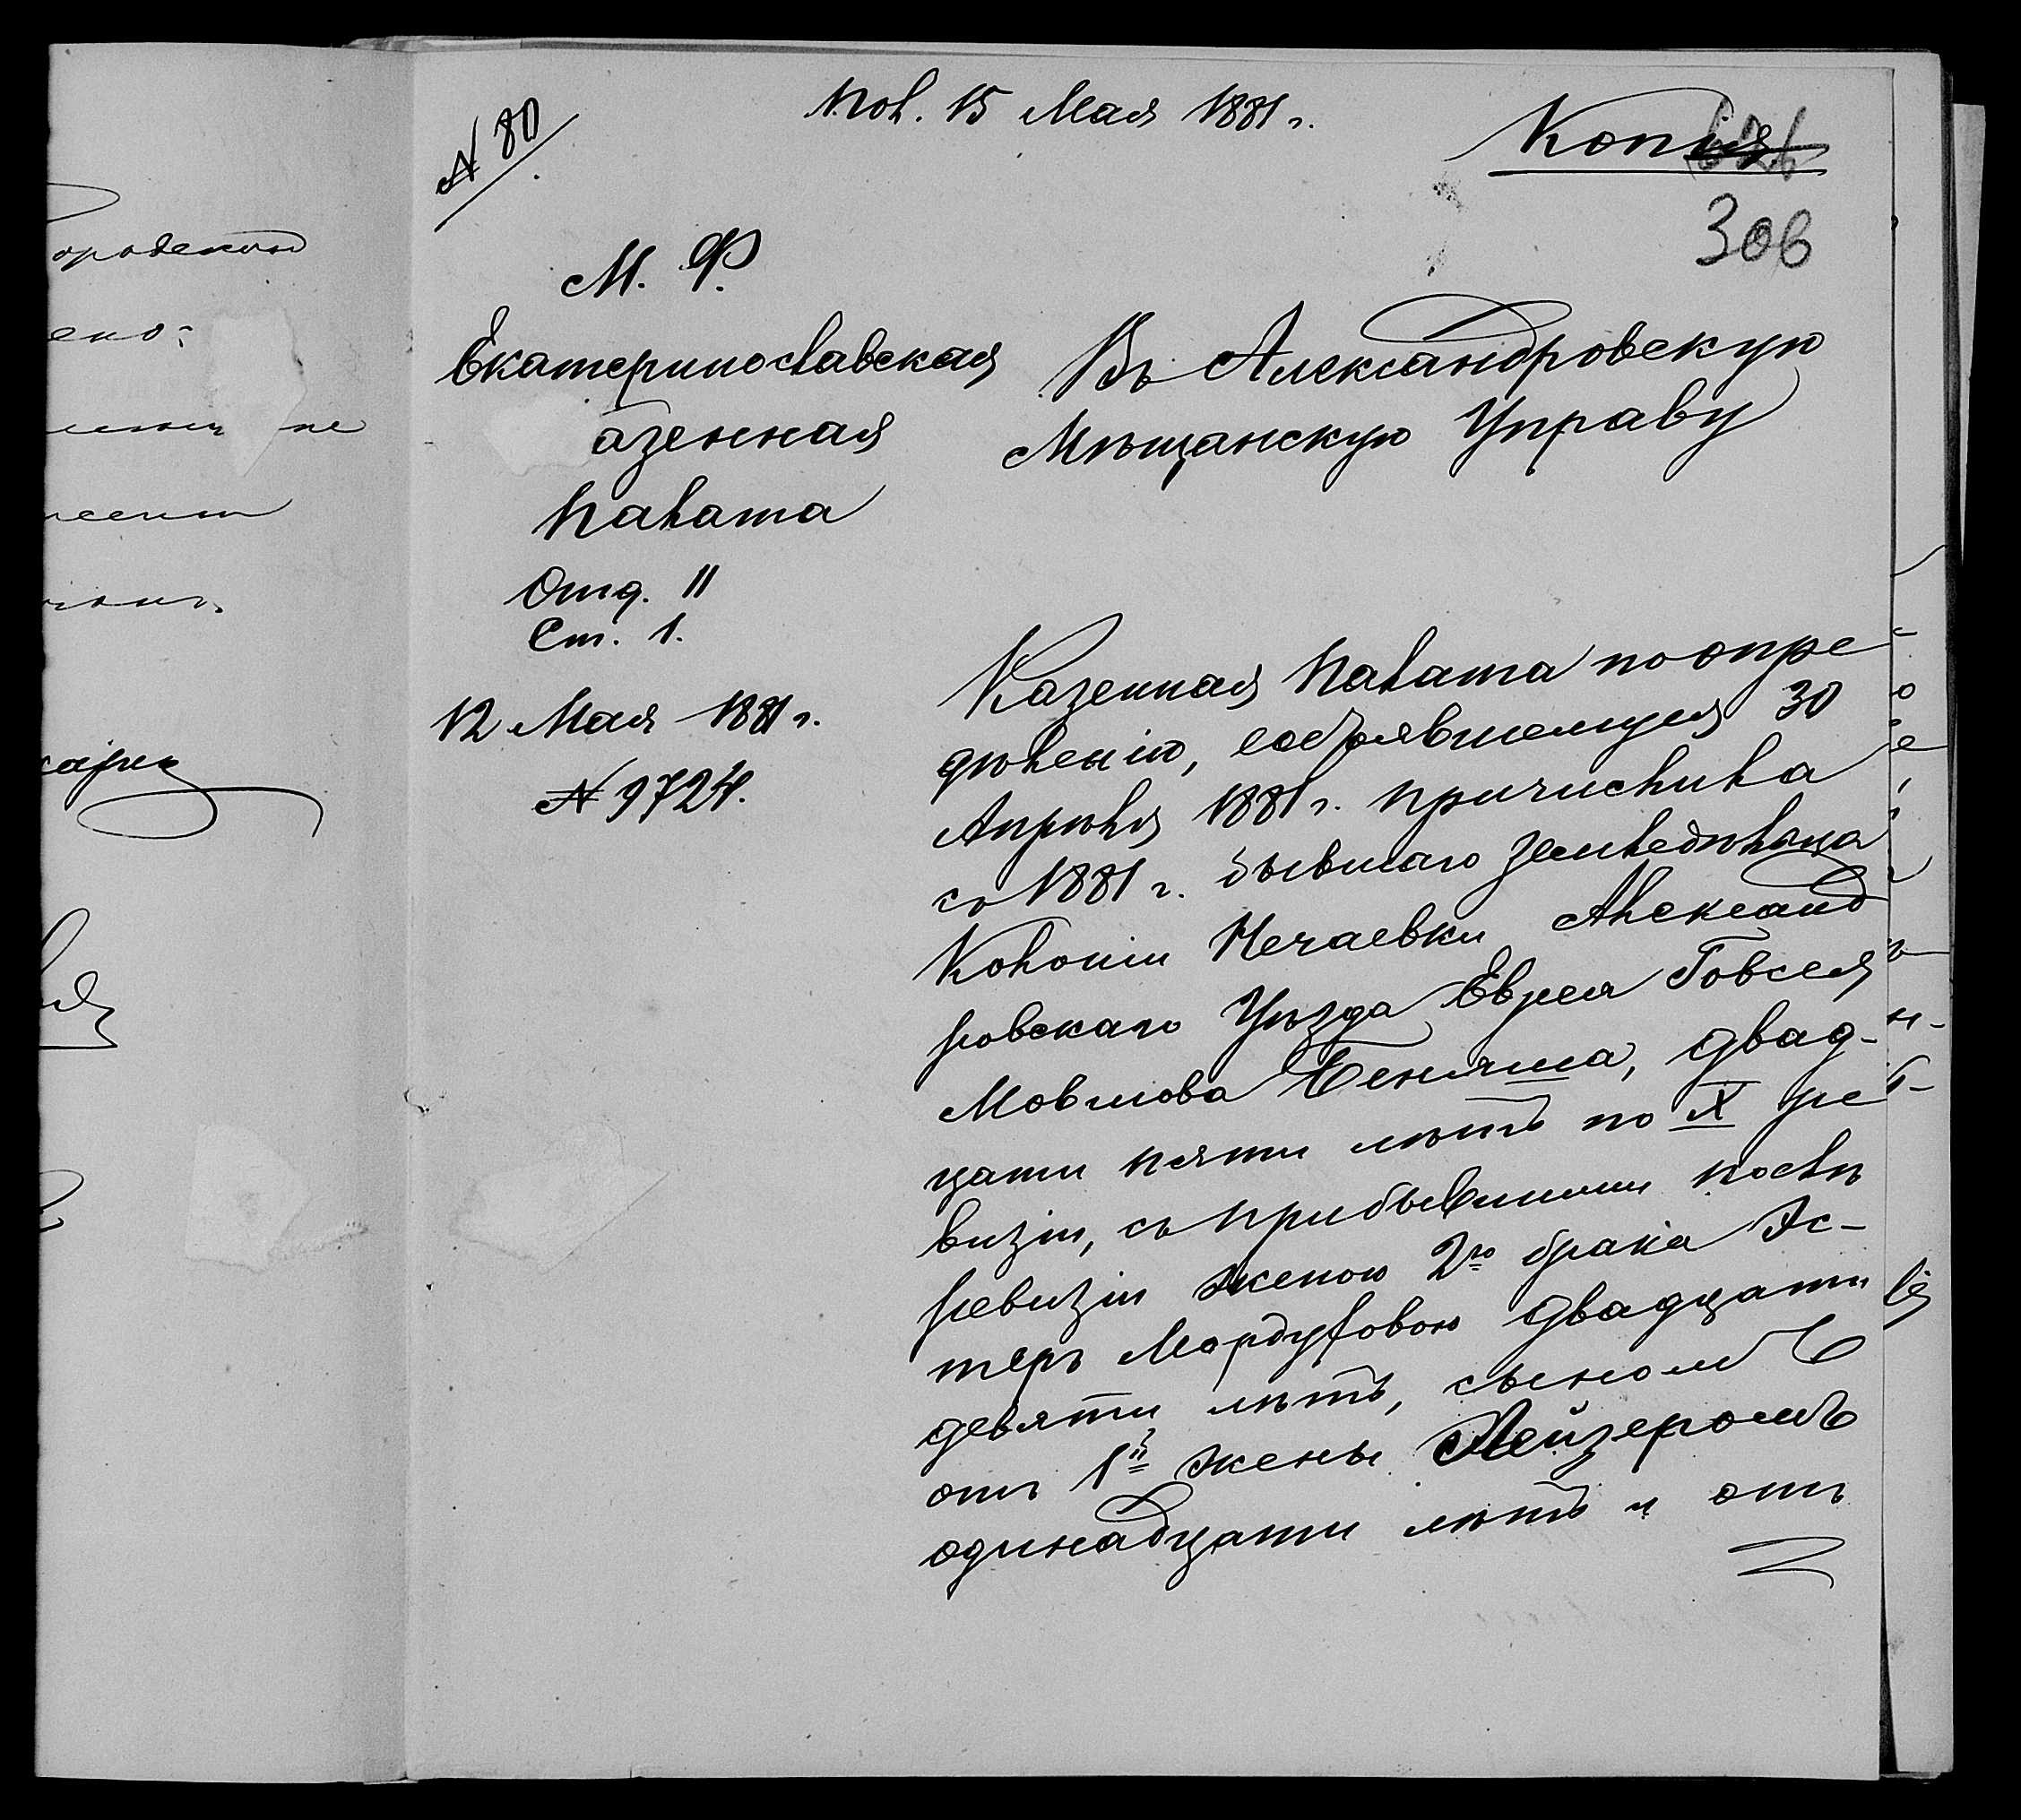 № 80
Пол. 15 Мая 1881 г.
Копія
306
М. Ф.
Екатеринославская
азенная
Палата
Отд. II
Ст. 1.
12 Мая 1881 г.
№ 9724.
Въ Александровскую
Мѣщанскую Управу
Казенная Палата по опре
дѣленію, состоявшемуся 30
Апрѣля 1881 г. причислила
съ 1881 г. бывшаго земледѣльца
Колоніи Нечаевки Александ
ровскаго Уѣзда Еврея Говсея
Мовшова Беняша, двад-
цати пяти лѣтъ по X ре
визіи, съ прибывшими послѣ
ревизіи женою 2го брака Эс-
теръ Мордуховою двадцати
девяти лѣтъ, сыномъ
отъ 1й жены Лейзеромъ
одинадцати лѣтъ и отъ